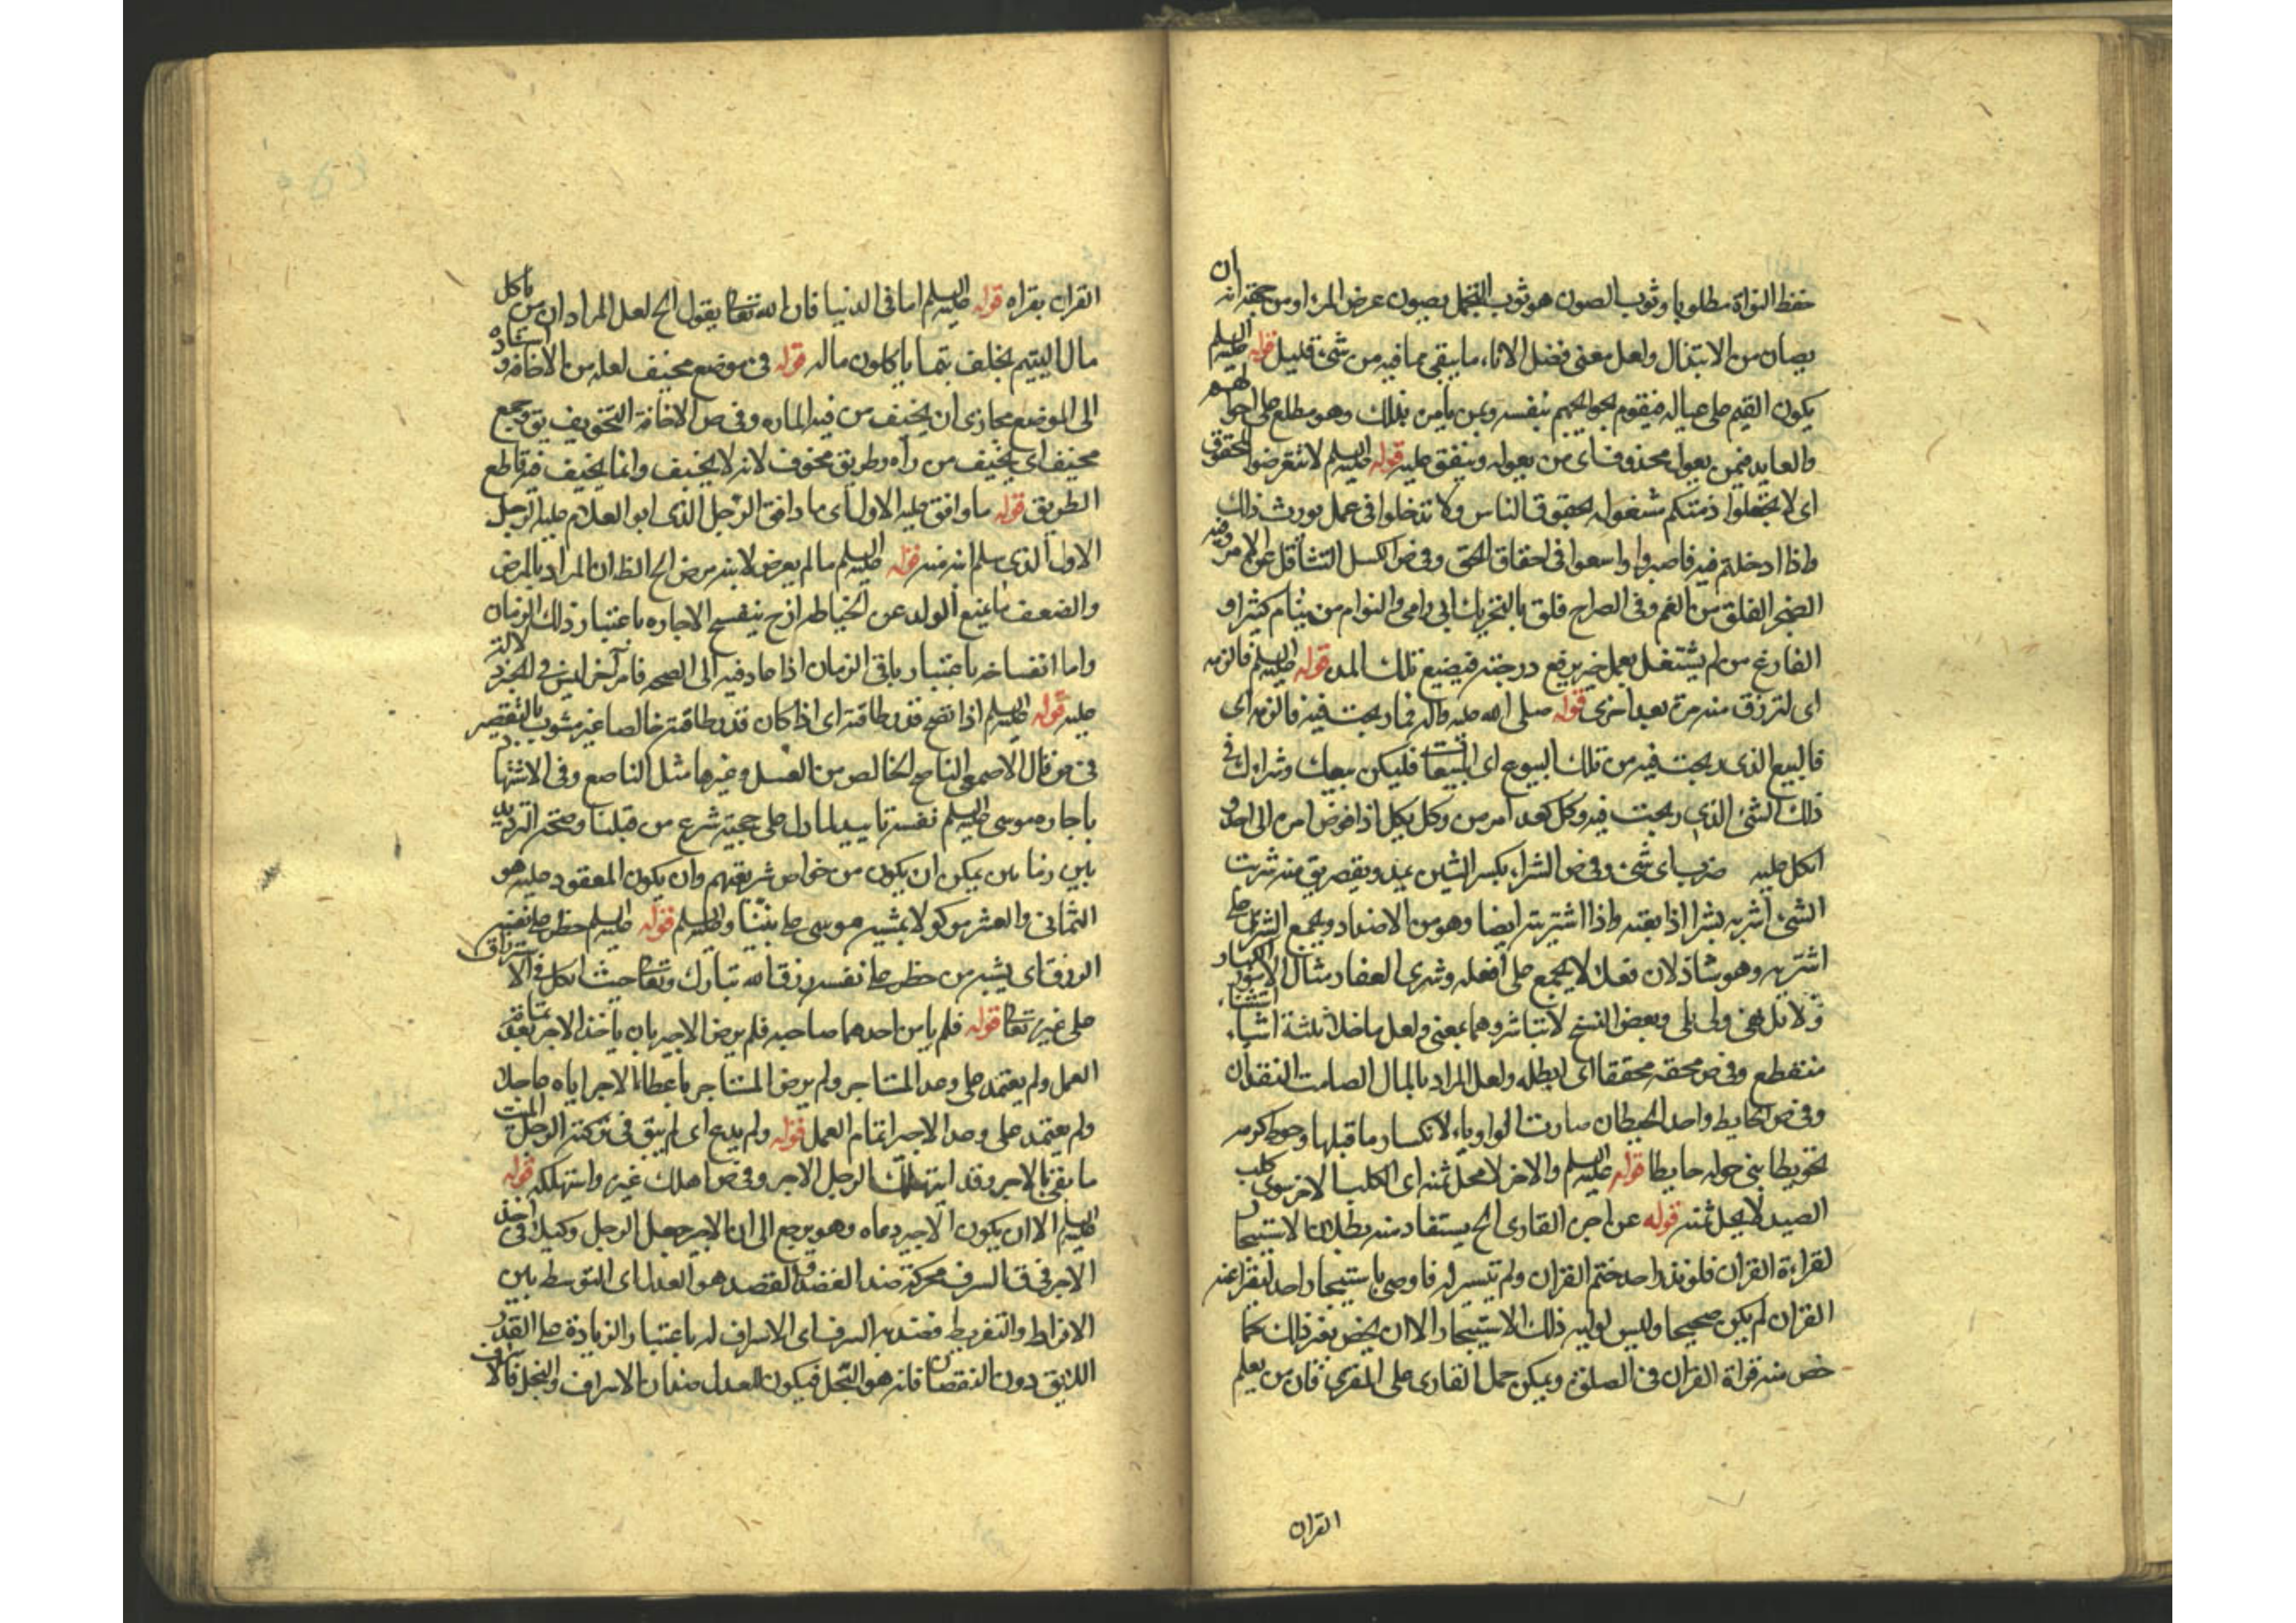 حفظ النواة مطلوبا وثوب الصون هو ثوب التجمل يصون عرض المرء او من جهة انه ان
يصان من الابتذال ولعل معنى فضل الاناء ما يبقى مما فيه من شئ قليل قوله عليه السلم
يكون القيم على عياله فيقوم بحوائجهم بنفسه وبمن يامره بذلك وهو مطلع على احوالهم
والعايد فيمن يعول محذوف اى من يعوله وينفق عليه قوله عليه السلم لا تتعرضوا للحقوق
اى لا تجعلوا ذمتكم مشغوله بحقوق الناس ولا تدخلوا فى عمل يورث ذلك
واذا ادخلتم فيه فاصبروا واسعوا فى احقاق الحق وفى ض الكسل التثاقل عن الامر وفيه
الضجر القلق من الغم وفى الصراح قلق بالتحريك بى ارامى والنوام من ينام كثيرا و
الفارغ من لم يشتغل بعمل خير يرفع درجته فيضيع تلك المدة قوله عليه السلم فالزمه
اى لترزق منه مرة بعد اخرى قوله صلى الله عليه واله فما ربحت فيه فالزمه اى
فالبيع الذى ربحت فيه من تلك البيوع اى المبيعات فليكن بيعك وشراءك فى
ذلك الشئ الذى ربحت فيه وكل كعد امر من وكل يكل اذا فوض امره الى احد و
اتكل عليه ضرب اى شئ وفى ض الشراء بكسر الشين يمد ويقصر يق منه شريت
الشئ اشريه شرا اذا بعته واذا اشتريته ايضا وهو من الاضداد ويجمع الشرى على
اشرية وهو شاذ لان فعلا لا يجمع على افعله وشرى العقار مثال الامور الكبار
ولا تل نهى ولى يلى وبعض النسخ لا تباشر وهما بمعنى ولعل ما خلا ثلثة اشياء استثناء
منقطع وفى ض محقه محققا اى ابطله ولعل المراد بالمال الصامت النقدان
وفى ض الحايط واحد الحيطان صارت الواو ياء لانكسار ما قبلها وحوط كرمه
تحويطا بنى حوله حايطا قوله عليه السلم والاخر لا محل ثمنه اى الكلب الاخر سوى كلب
الصيد لا يحل ثمنه قوله عن اجر القارى الخ يستفاد منه بطلان الاستيجار
لقراءة القران فلو نذر احد ختم القران ولم تيسر له فاوصى باستيجار احد ليقرا عنه
القران لم يكن صحيحا وليس لوليه ذلك الاستيجار الا ان يخص بغير ذلك كما
خص منه قراة القران فى الصلوة ويمكن حمل القارى على المقرى فان من يعلم
القران
القران يقراه قوله عليه السلم اما فى الدنيا فان الله تعالى يقول الخ لعل المراد ان من ياكل
مال اليتيم يخلف يتما ياكلون ماله قوله فى موضع مخيف لعله من الاخافه و اسناده
الى الموضع مجازى ان يخيف من فيه الماره وفى ض الاخافة التخويف يق وجع
مخيف اى يخيف من راه وطريق مخوف لانه لا يخيف وانما يخيف فيه قاطع
الطريق قوله ما وافق عليه الاول اى ما وافق الرجل الذى ابو الغلام عليه الرجل
الاول الذى سلم ابنه منه قوله عليه السلم ما لم يعرض لابنه مرض الخ الظ ان المراد بالمرض
والضعف ما يمنع الولد عن الخياطه اذ ح ينفسخ الاجاره باعتبار ذلك الزمان
واما انفساخه باعتبار باقى الزمان اذا عاد فيه الى الصحه فامر اخر ليس فى الخبر دلالة
عليه قوله عليه السلم اذا نصح قدر طاقته اى اذا كان قدر طاقته خالصا غير مشوب بالتقصير
فى ض قال الاصمعى الناصح الخالص من العسل وغيرها مثل الناصع وفى الاشتها
باجاره موسى عليه السلم نفسه تاييد لما دل على حجية شرع من قبلنا وصحة الترديد
بين زمانين يمكن ان يكون من خواص شريعتهم وان يكون المعقود عليه هو
الثمانى والعشر موكولا بمشية موسى على نبينا وعليه السلم قوله عليه السلم حظر على نفسه
الرزق اى يشبه من حظر على نفسه رزق الله تبارك وتعالى حيث اتكل فى الاسترزاق
على غيره تعالى قوله فلم يامن احدهما صاحبه فلم يرض الاجير بان ياخذ الاجر بعد تمامية
العمل ولم يعتمد على وعد المستاجر ولم يرض المستاجر باعطاء الاجر اياه عاجلا
ولم يعتمد على وعد الاجير اتمام العمل قوله ولم يدع اى لم يبق فى تركته الرجل الميت
ما يفى بالاجر وقد استهلك الرجل الاجر وفى ض اهلك غيره واستهلكه قوله
عليه السلم الا ان يكون الاجير دعاه وهو يرجع الى ان الاجير جعل الرجل وكيلا فى اخذ
الاجر فى ق السرف محركة ضد القصد والقصد هو العدل اى التوسط بين
الافراط والتفريط فضديه السرف اى الاسراف له باعتبار الزيادة على القدر
اللايق دون النقصان فانه هو البخل فيكون للعدل ضدان الاسراف والبخل فالاسراف